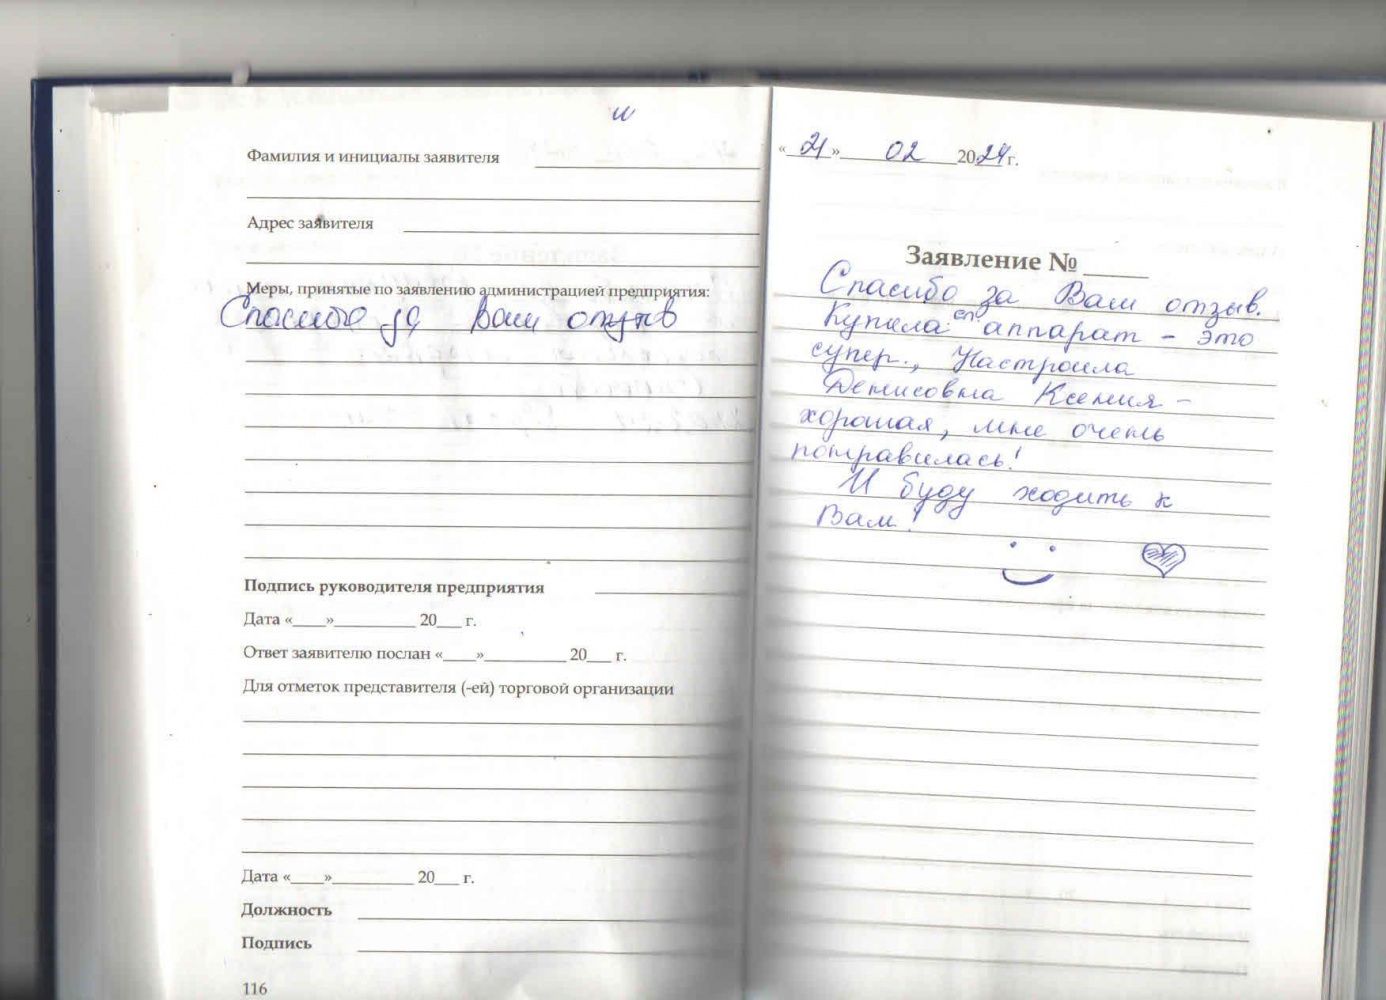 Фамилия и инициалы заявителя
Адрес заявителя
Меры, принятые по заявлению администрацией предприятия:
Спасибо за Ваш отзыв
Подпись руководителя предприятия
Дата «____»__________ 20___ г.
Ответ заявителю послан «____»__________ 20___ г.
Для отметок представителя (-ей) торговой организации
Дата «____»__________ 20___ г.
Должность
Подпись
116
«21» 02 2024 г.
Заявление №
Спасибо за Вам отзыв.
Купила сл. аппарат - это
супер., Настроила
Денисовна Ксения -
хорошая, мне очень
понравилась!
И буду ходить к
Вам!